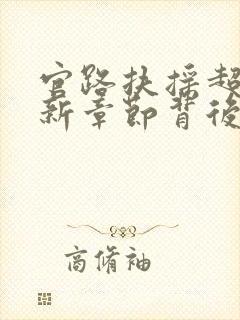 官路扶摇超
新章节背後
商脩袖